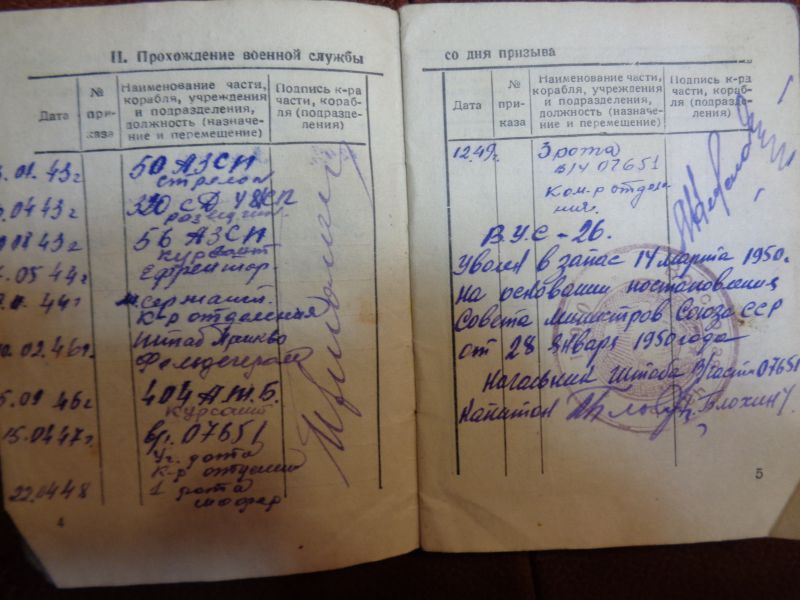 II. Прохождение военной службы
Дата
№ при-каза
Наименование части,
корабля, учреждения
и подразделения,
должность (назначе-
ние и перемещение)
Подпись к-ра
части, кораб-
ля (подразде-
ления)
.01.43г 50 АЗСП
стрелок
.04.43г 320 СД СП
.08.43г 56 АЗСП
курсант
.05 44г Ефрейтор
44г сержант
к-р отделения
.02.46г. Штаб
Фельдегерь
5.09 46г 404 А.Т.Б.
курсант
15.04 47г. в/ч 07651
Уч. рота
к-р отделения
22.04 48 1 рота
шофер
4
со дня призыва
Дата
№ при-каза
Наименование части,
корабля, учреждения
и подразделения,
должность (назначе-
ние и перемещение)
Подпись к-ра
части, кораб-
ля (подразде-
ления)
12.49г. 3 рота
в/ч 07651
Ком-р отделе-
ния.
В.У.С - 26.
Уволен в запас 14 марта 1950г.
на основании постановления
Совета Министров Союза ССР
от 28 января 1950 года
Начальник штаба в/части 07651
Капитан Блохин
5